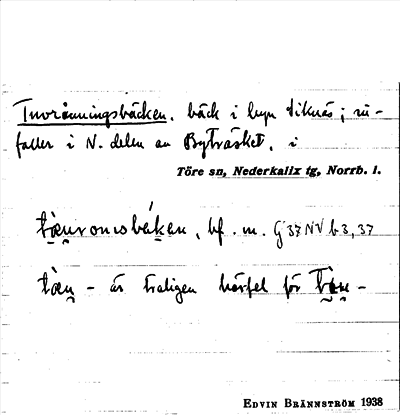 Tnorånningsbäcken, bäck i byn Siknäs; in-
faller i N. delen av Byträsket, i
Töre sn, Nederkalix tg, Norrb. l.
bf. m. G 37 NV b 3, 37
tæ̀n - är troligen hörfel för
EDVIN BRÄNNSTRÖM 1938